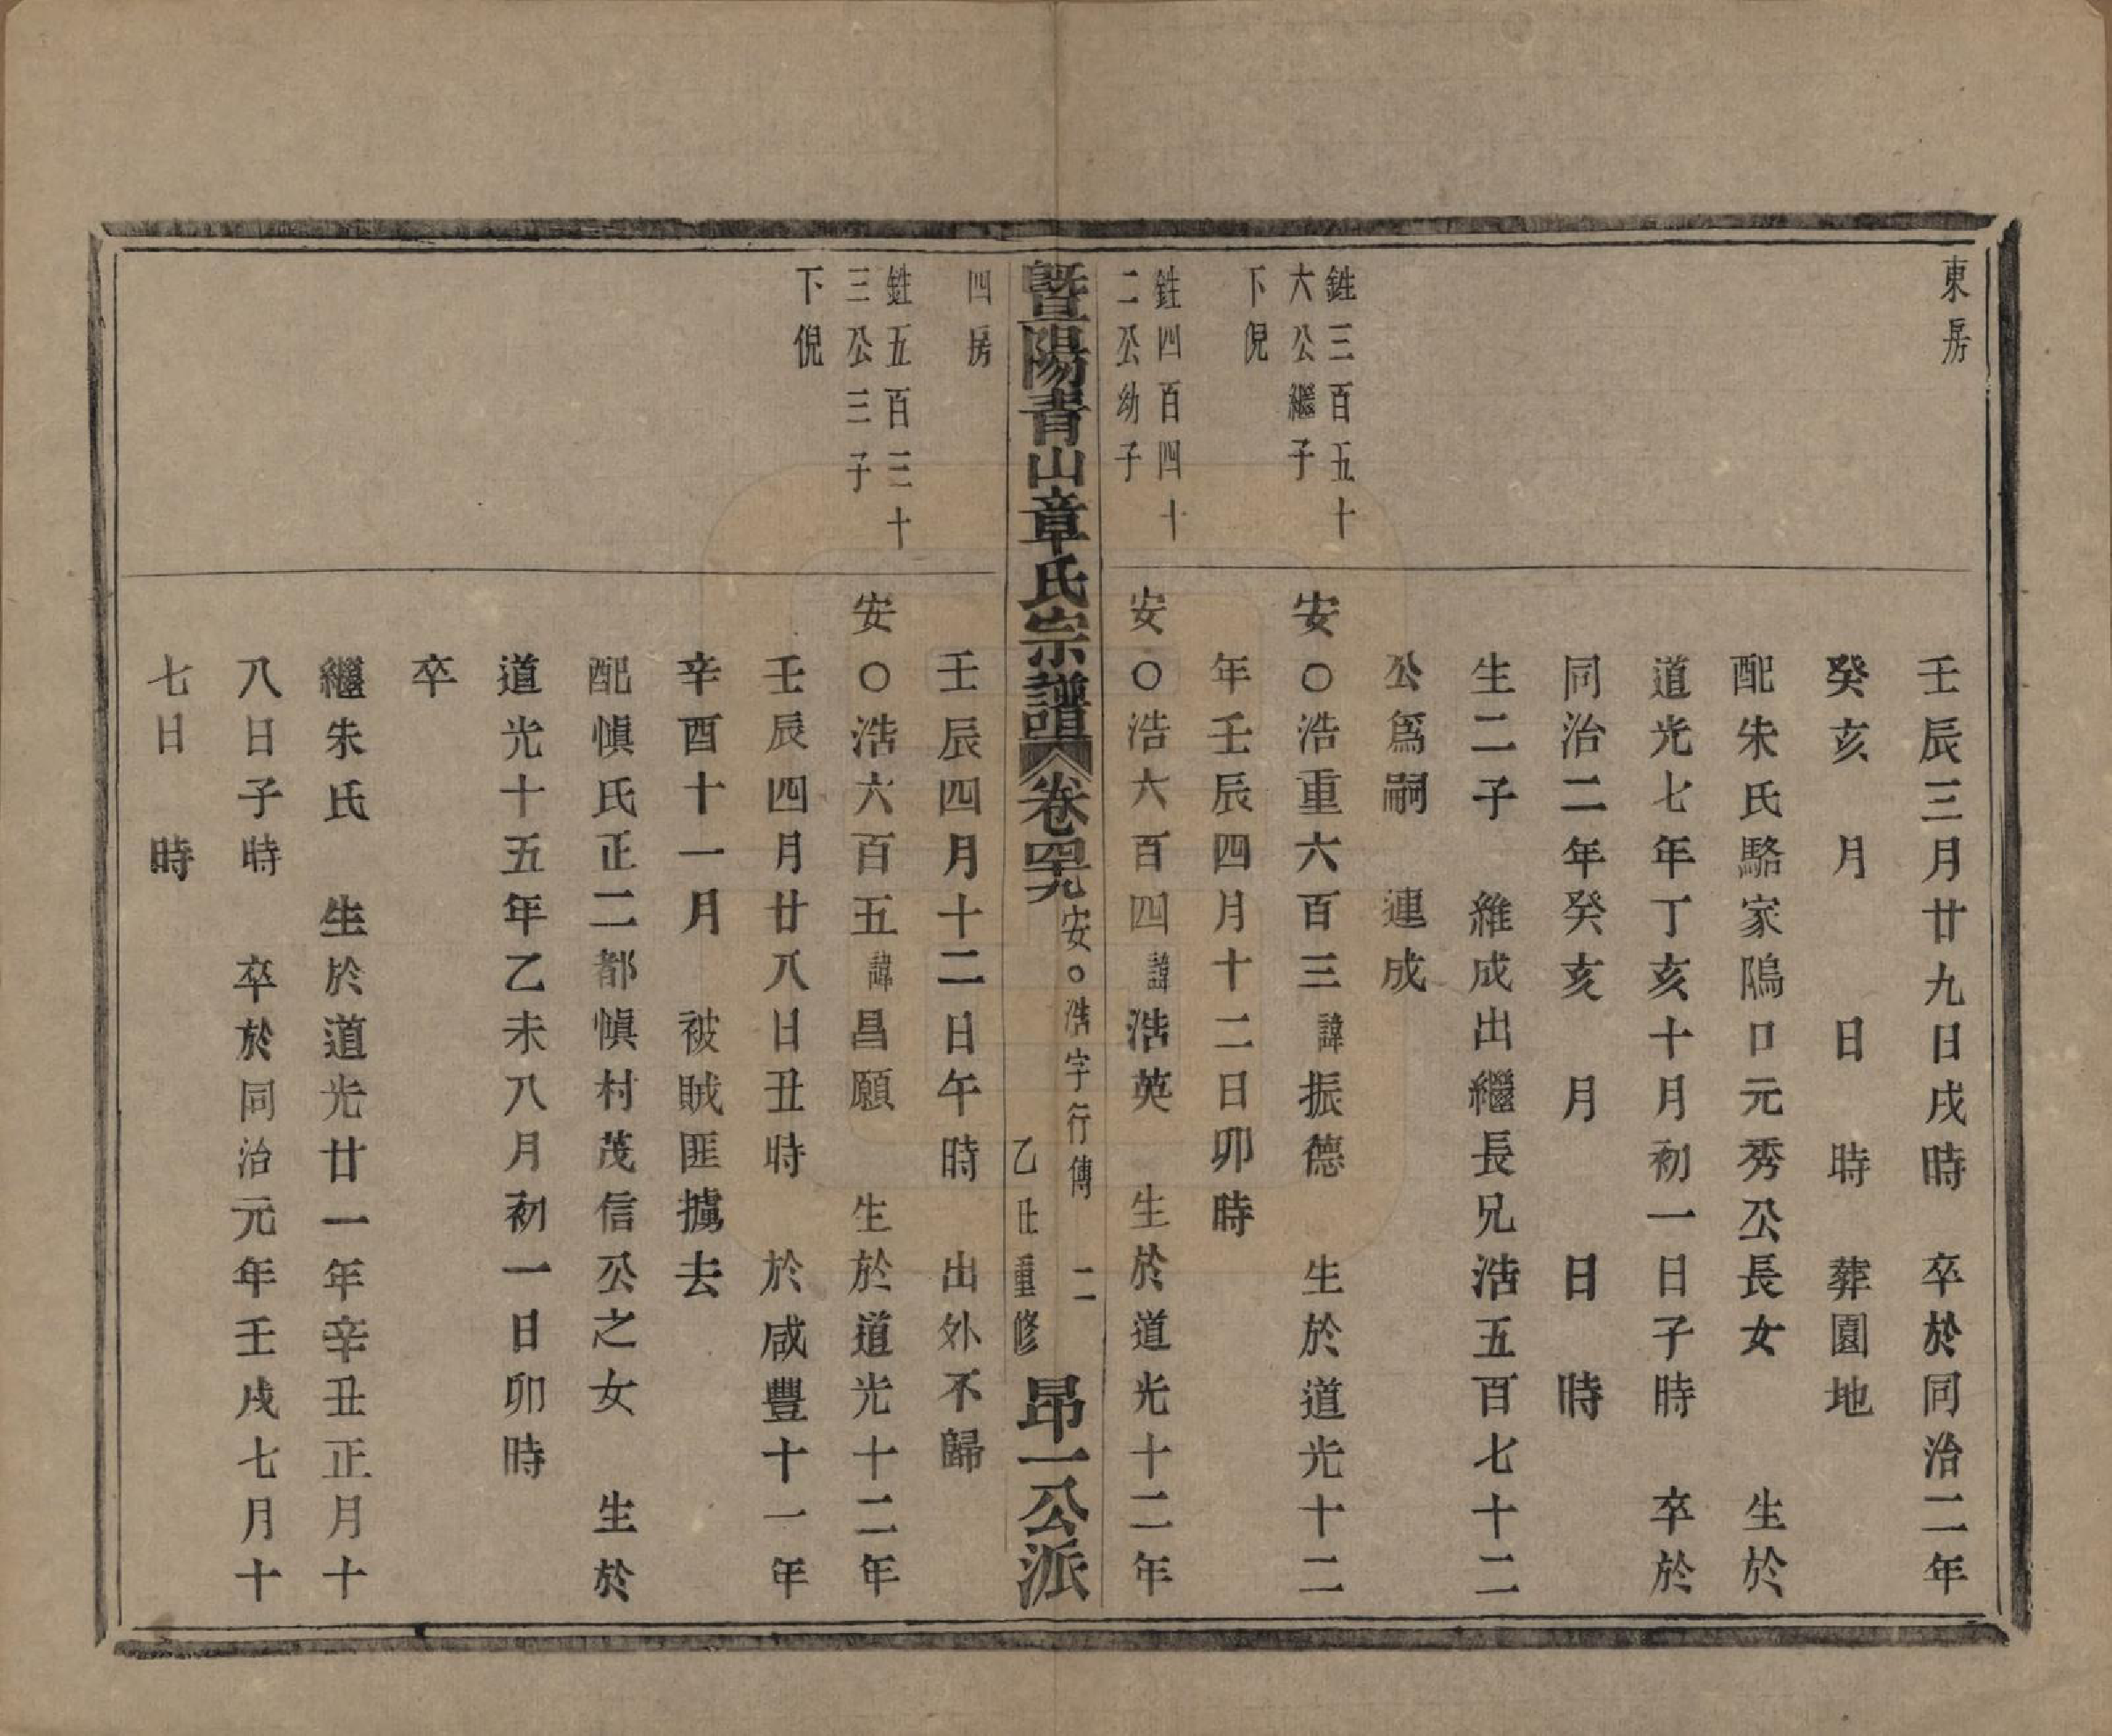 東房
壬辰三月廿九日戌時　卒於同治二年
癸亥　月　　日　時　葬園地
配朱氏駱家隝口元秀公長女　　生於
道光七年丁亥十月初一日子時　卒於
同治二年癸亥　月　　日　時
生二子　維成出繼長兄浩五百七十二
公爲嗣　連成
鉎三百五十
六公繼子
下倪
安○浩重六百三諱振德　生於道光十二
年壬辰四月十二日卯時
鉎四百四十
二公幼子
安○浩六百四諱浩英　生於道光十二年
暨陽青山章氏宗譜
卷四九
安○浩字行傳　二
乙丑重修
昂一公派
四房
壬辰四月十二日午時　出外不歸
鉎五百三十
三公三子
下倪
安○浩六百五諱昌願　生於道光十二年
壬辰四月廿八日丑時　於咸豐十一年
辛酉十一月　被賊匪擄去
配愼氏正二都愼村茂信公之女　生於
道光十五年乙未八月初一日卯時
卒
繼朱氏　生於道光廿一年辛丑正月十
八日子時　卒於同治元年壬戌七月十
七日　時